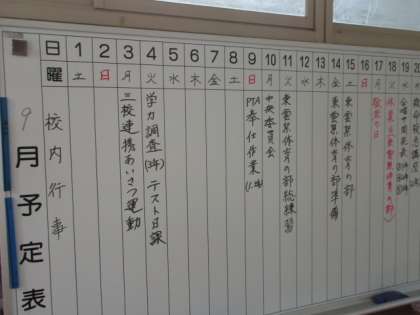 9月予定表
日 1 2 3 4 5 6 7 8 9 10 11 12 13 14 15 16 17 18 19 20
曜 土 日 月 火 水 木 金 土 日 月 火 水 木 金 土 日 月 火 水 木
校内行事
三校連携あいさつ運動
学力調査(3年) テスト日課
PTA奉仕作業
中央委員会
東雲祭体育の部総練習
東雲祭体育の部準備
東雲祭体育の部
敬老の日